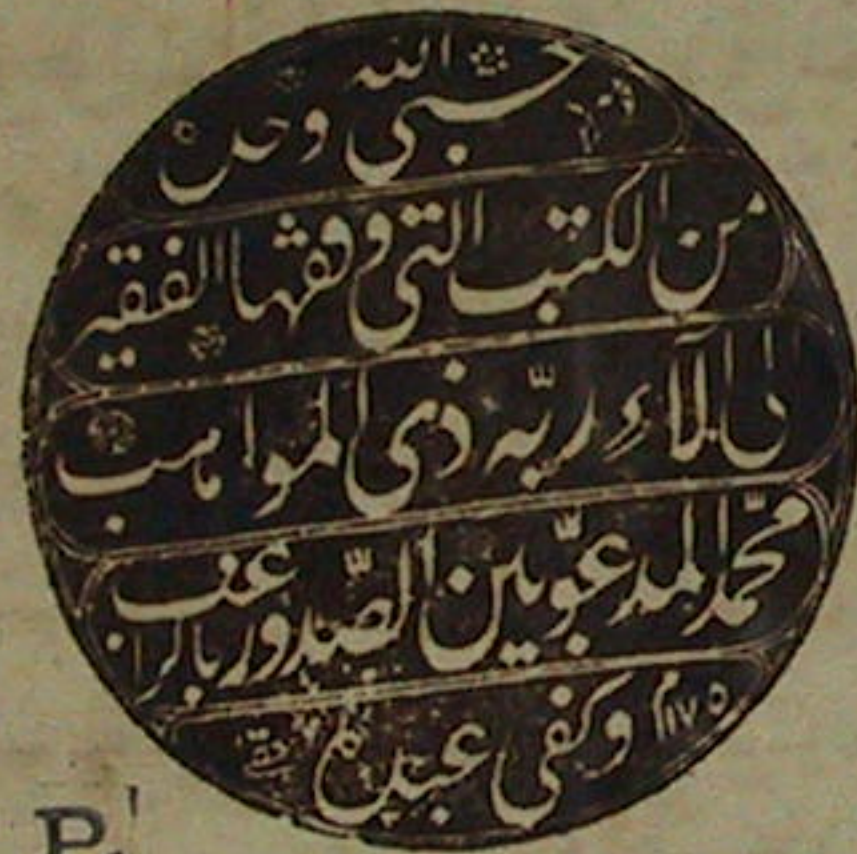 حسبى الله وحده
من الكتب التى وقفها الفقير
الى آلآء ربّه ذى المواهب
محمّد المدعوّ بين الصّدور بالراغب
وكفى عبده